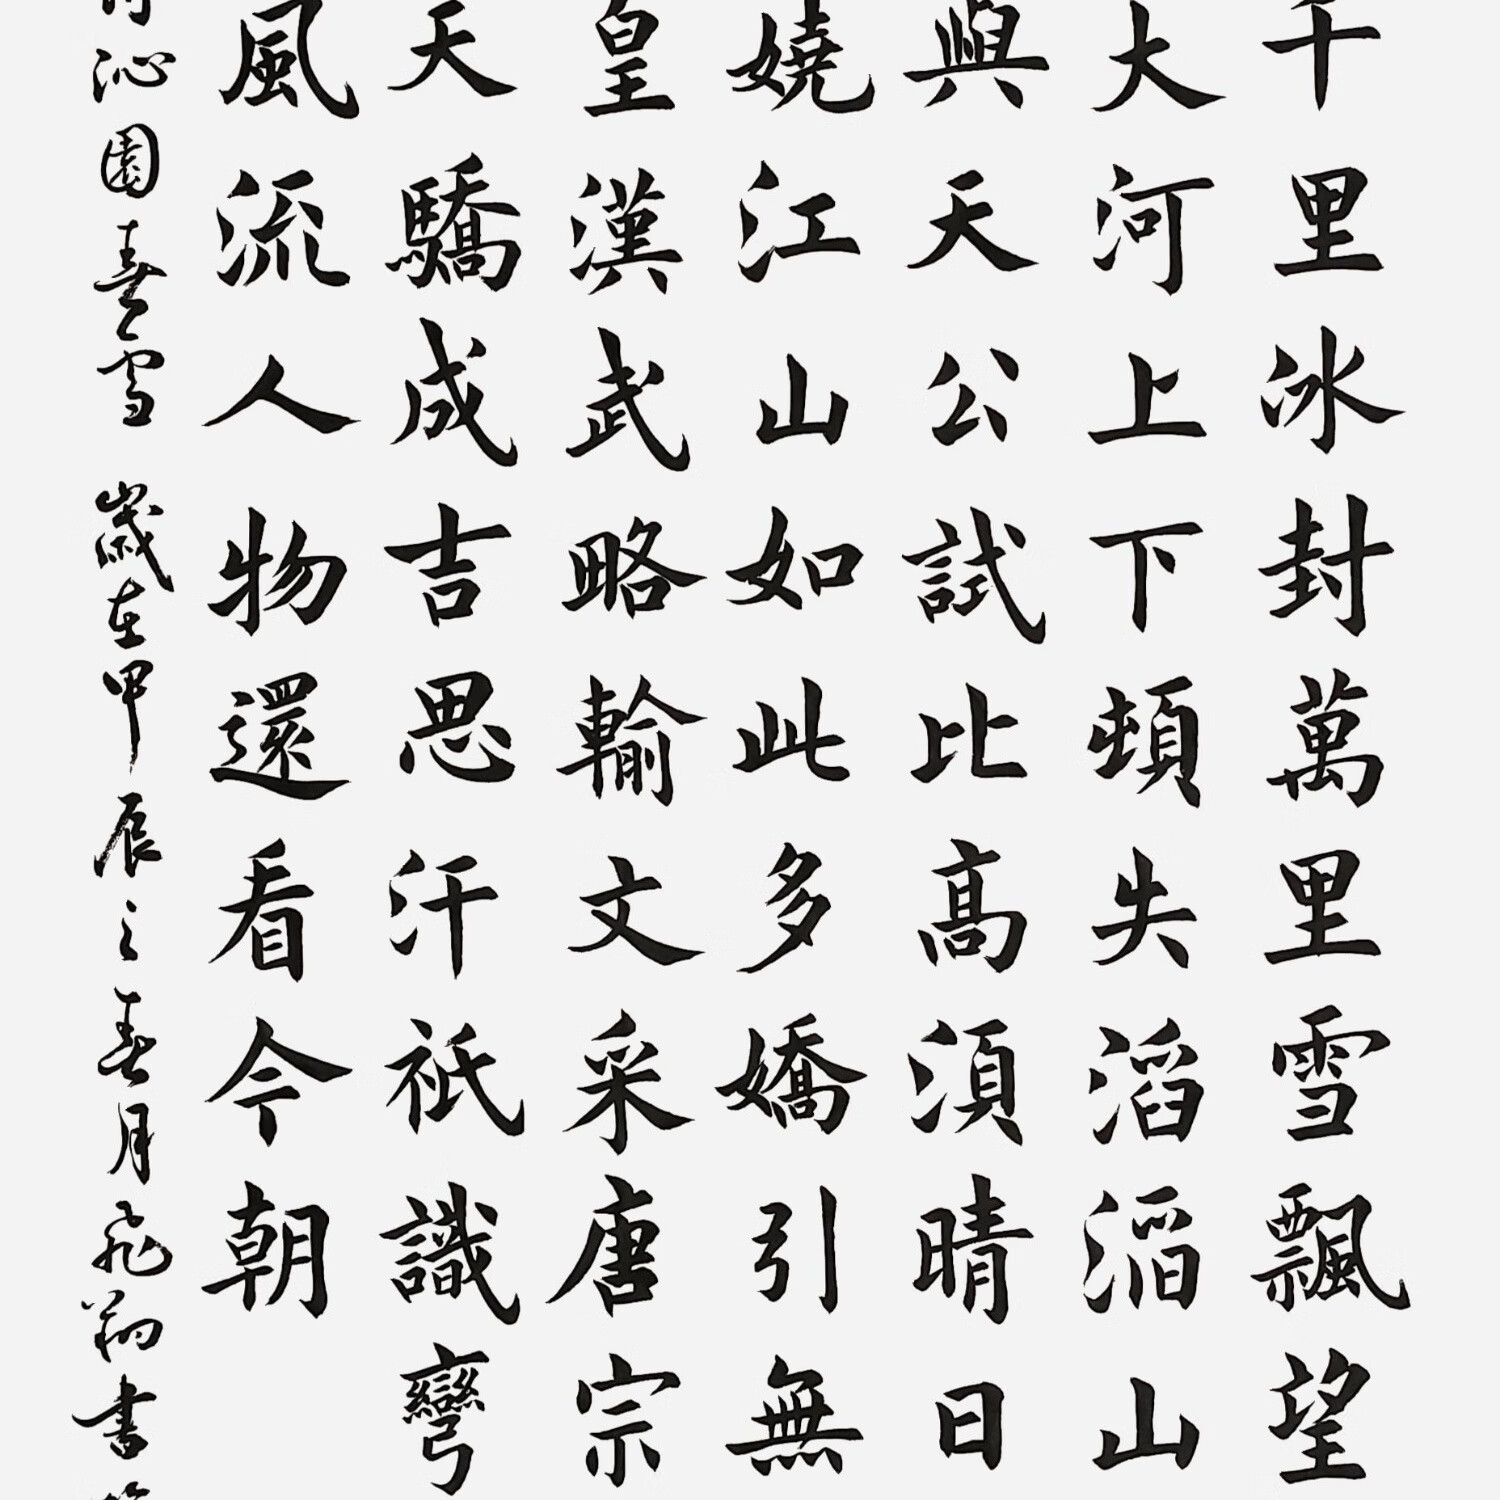 千里冰封萬里雪飄望
大河上下頓失滔滔山
與天公試比高須晴日
嬈江山如此多嬌引無
皇漢武略輸文采唐宗
天驕成吉思汗祇識彎
風流人物還看今朝
沁園春雪 歲在甲辰之春月飛翔書